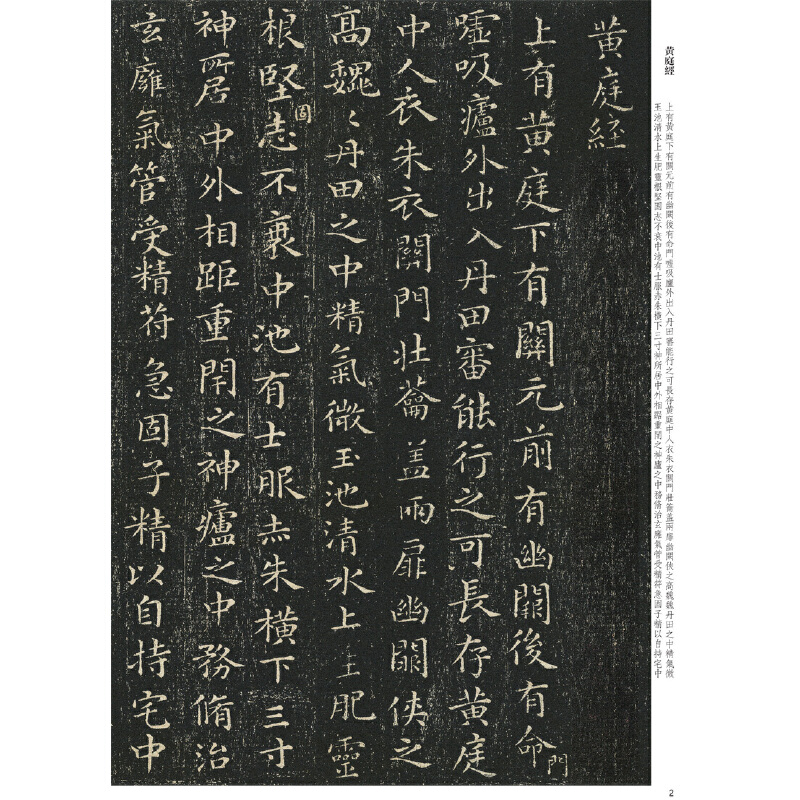 黃庭經
上有黃庭下有關元前有幽闕後有命門噓吸廬外出入丹田審能行之可長存黃庭中人衣朱衣關門壯籥蓋兩扉幽闕俠之高巍巍丹田之中精氣微
玉池清水上生肥靈根堅固志不衰中池有士服赤朱橫下三寸神所居中外相距重閉之神廬之中務脩治玄廱氣管受精符急固子精以自持宅中
黃庭経
上有黃庭下有關元前有幽闕後有命門
噓吸廬外出入丹田審能行之可長存黃庭
中人衣朱衣關門壯蘥盖兩扉幽闕俠之
高巍〻丹田之中精氣微玉池清水上生肥靈
根堅固志不衰中池有士服赤朱横下三寸
神所居中外相距重閇之神廬之中務脩治
玄廱氣管受精苻急固子精以自持宅中
2